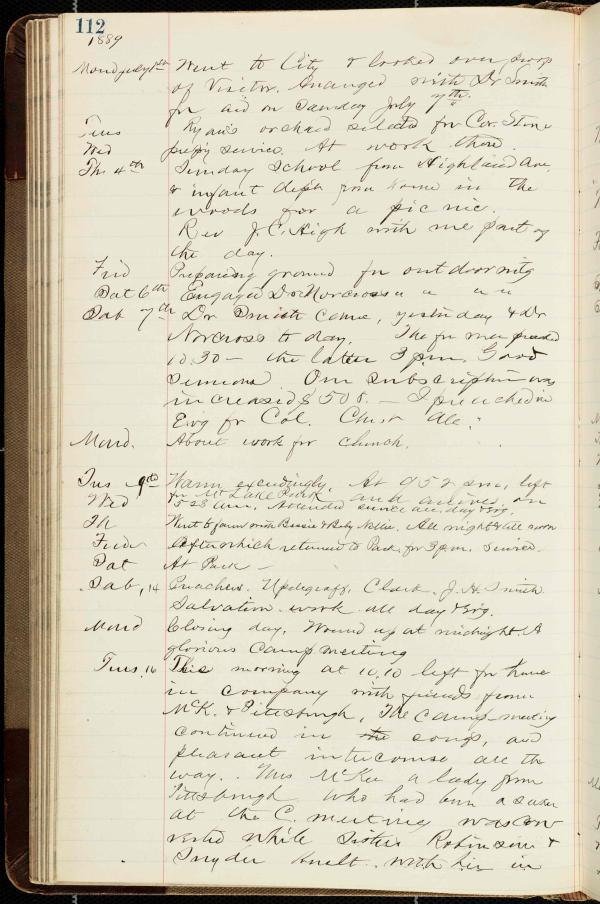 112
1889
Mond July 1st Went to City & looked over proof
of Visitor. Arranged with Dr Smith
for aid on Sunday July 7th.
Tues Ryan's orchard selected for Cor. Stone
Wed service. At work there.
Th. 4th Sunday School from Highland Ave.
& infant dept from home in the
woods for a picnic.
Rev J. C. High with me part of
the day.
Frid Preparing ground for outdoor mtg
Sat 6th Engaged Dr Norcross " " " "
Sab 7th Dr Smith came, yesterday & Dr
Norcross to day. The for mer preached
10.30 — the latter 3 p.m. Good
Sermons Our subscription was
increased $ 508. — I preached in
Evg for Col. Ch.
Mond. About work for church.
Tues 9th Warm exceedingly. At 9 52 p.m. left
Wed for Mt Lake Park and arrived on
5 28 a.m. Attended service all day & Evg.
Th Went to farm with Bessie & Baby Nellie. All night & till noon
Frid after which returned to Park for 3 p.m. Service.
Sat At Park —
Sab. 14 Preachers. Updegraff, Clark. J. H. Smith
Salvation work all day & Evg.
Mond Closing day. Wound up at midnight. A
glorious Camp meeting
Tues. 16 This morning at 10.10 left for home
in company with friends from
McK. & Pittsburgh. The Camp-meeting
continued in the song, and
pleasant intercourse all the
way. Mrs McKee a lady from
Pittsburgh who had been a seeker
at the C. meeting was con
verted while Sister Robinson &
Snyder knelt with her in